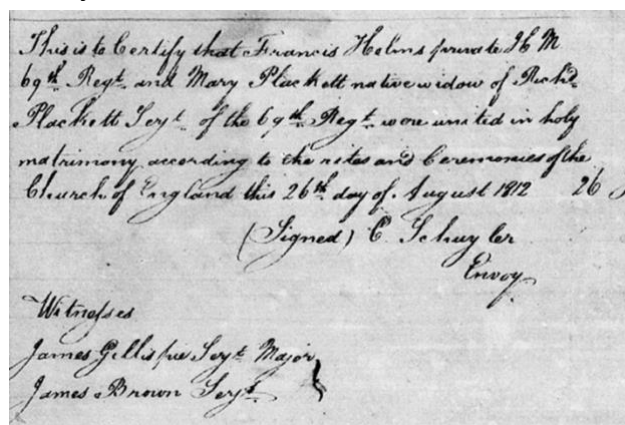 This is to Certify that Francis Helms private H M
69th Regt. and Mary Plackett native widow of Richd.
Plackett Serjt. of the 69th Regt. were united in holy
matrimony according to the rites and Ceremonies of the
Church of England this 26th day of August 1812 26
(Signed) C. Schuyler
Envoy
Witnesses
James Gillispie Serjt. Major
James Brown Serjt.